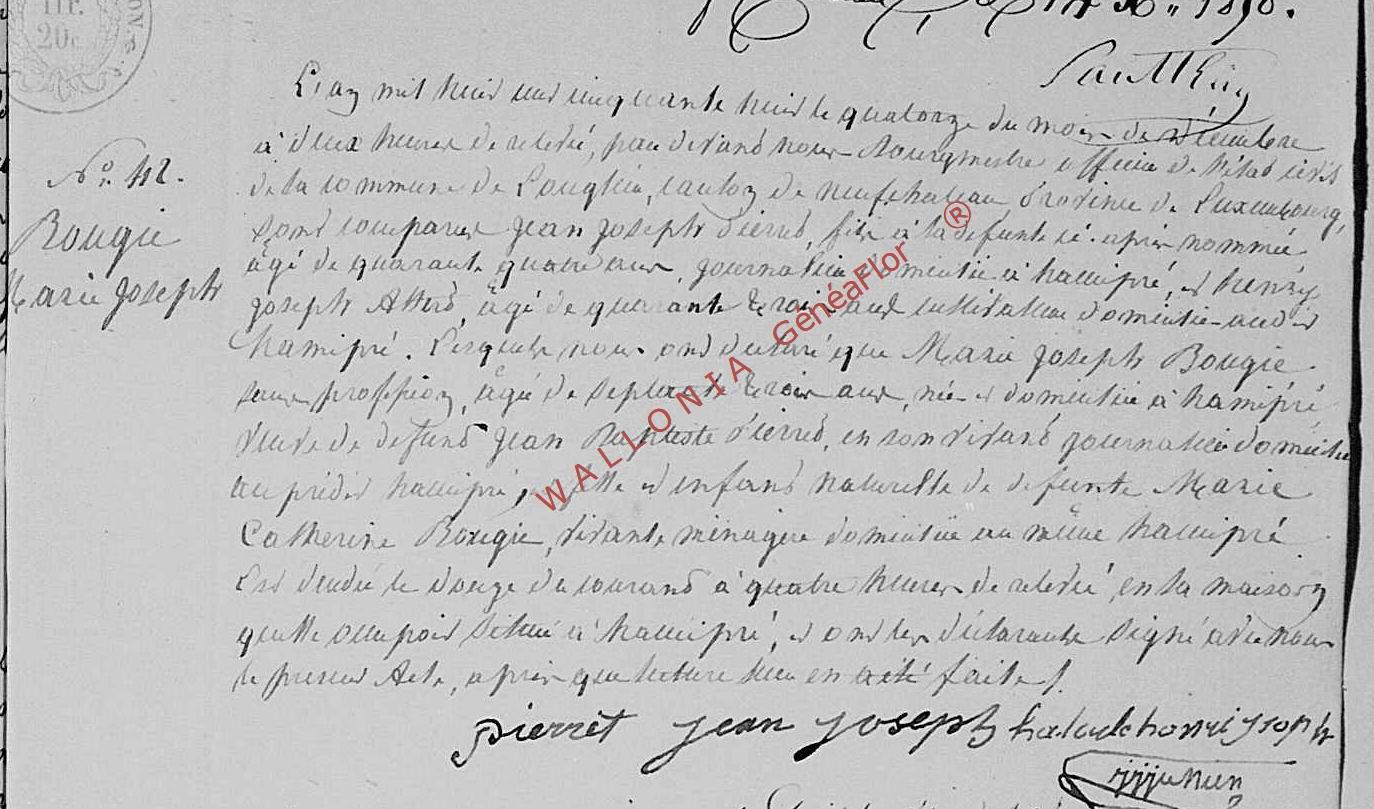 20c
14 Xbre 1858.
L'an mil huit cent cinquante huit le quatorze du mois de décembre
à deux heures de relevée, par devant nous Bourgmestre officier de l'état civil
de la commune de Longlier, canton de neufchateau Province de Luxembourg,
sont comparus Jean Joseph Pierret, fils à la défunte ci-après nommée
âgé de quarante quatre ans, journalier domicilié à hamipré, et henry
N° 42.
Bougie
Marie Joseph
joseph âgé de quarante trois ans cultivateur domicilié audit
hamipré. Lesquels nous ont déclaré que Marie Joseph Bougie
sans profession, âgée de septante trois ans, née et domiciliée à hamipré
veuve de défunt Jean Baptiste Pierret, en son vivant journalier domicilié
au prédit hamipré, fille et enfant naturelle de défunte Marie
Catherine Bougie, vivante ménagère domiciliée au même hamipré
Est décédée le douze du courant à quatre heures de relevée, en la maison
quelle occupoit située à hamipré, et ont les déclarants signé avec nous
le présent Acte, après que lecture leur en a été faite.
pierret jean joseph henri joseph
WALLONIA GénéaFlor ®